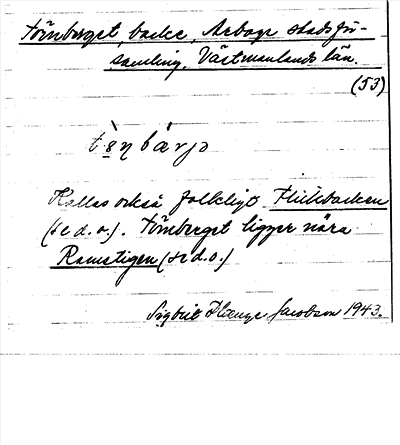 Törnberget, backe, Arboga stadsför-
samling, Västmanlands län.
(53)
Kallas också folkligt
(se d.o.). Törnberget ligger nära
Ramstigen (se d.o.)
Sigbrit Plænge Jacobson 1943.